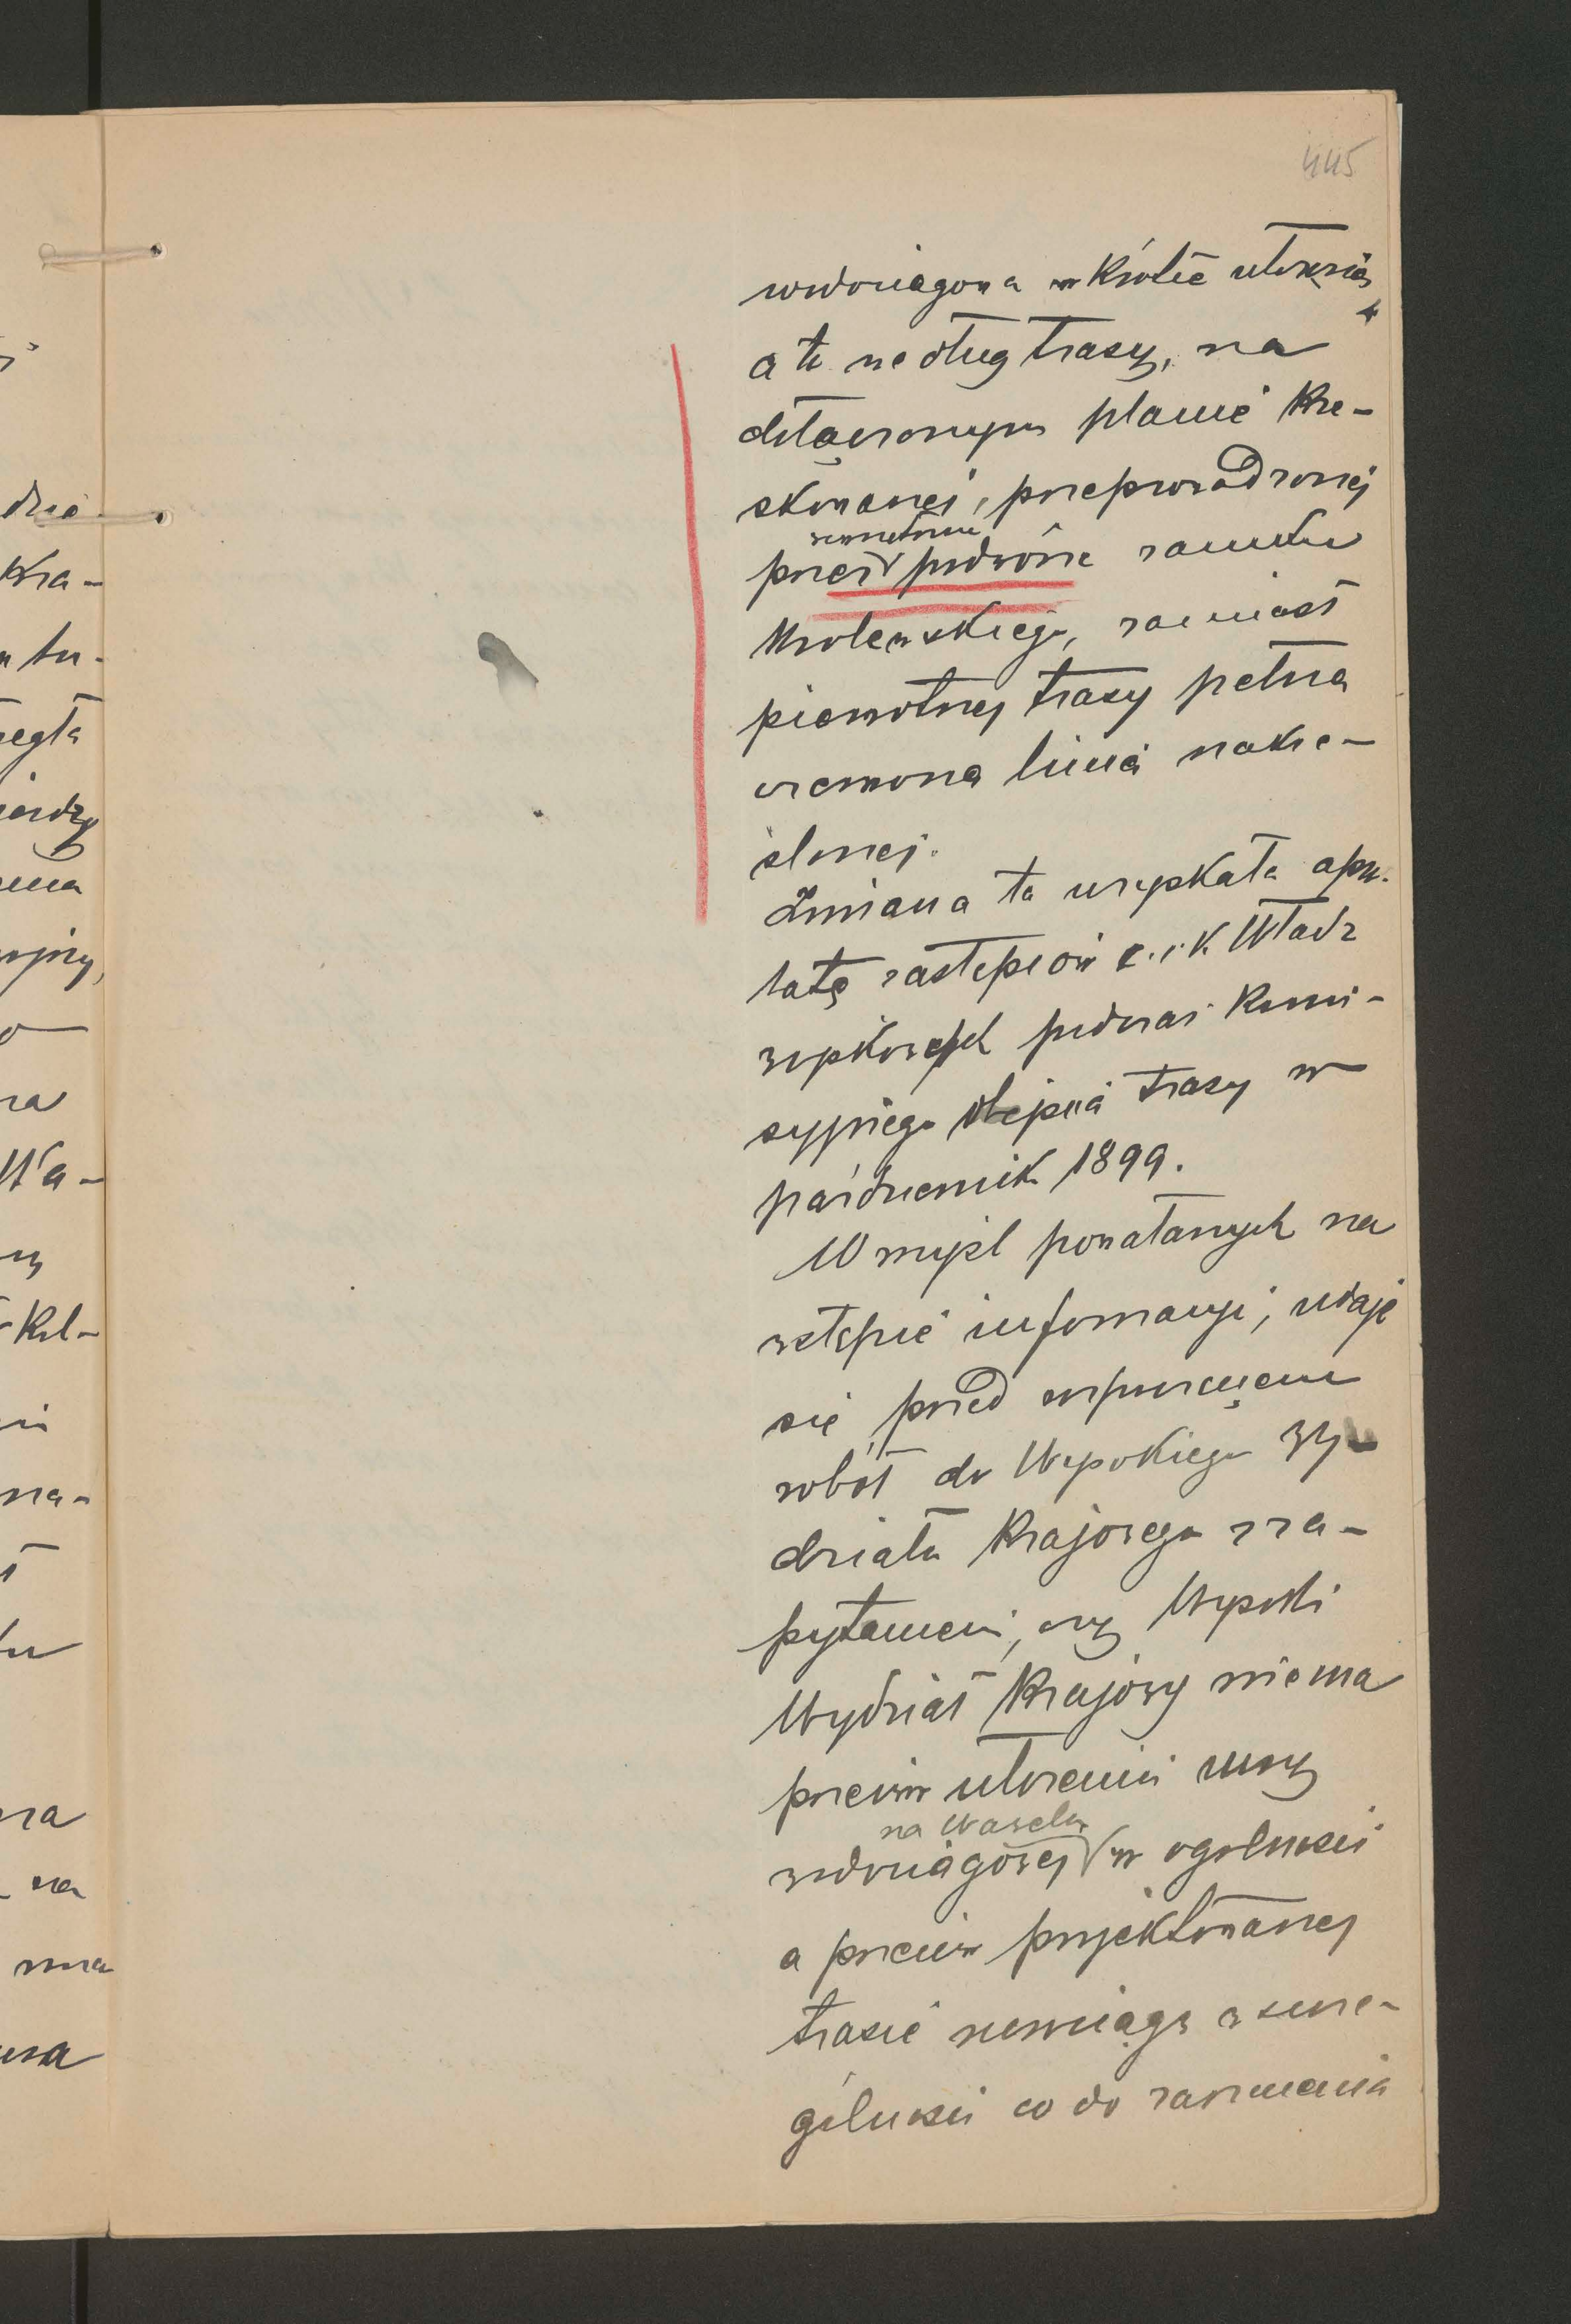 445
wodociągowa w krótce utożsia
a to według trasy, na
dołączonym planie kre-
skowanej, przeprowadzonej
wewnętrzne
przez podwórze zamku
Królewskiego, zamiast
pierwotnej trasy pełną
czerwoną linią nakre-
ślonej.
Zmiana ta uzyskała apro-
batę zastępców c. i k. Władz
wojskowych podczas komi-
syjnego objęcia trasy w
październik 1899.
W myśl powołanych na
wstępie informacyi, udaje
się przed rozpoczęciem
robót do Wysokiego Wy-
działu Krajowego z za-
pytaniem, czy Wysoki
Wydział Krajowy niema
przeciw ułożeniu rury
na Wawelu
wodociągowej w ogólności
a przeciw projektowanej
trasie rurociągu w szcze-
gólności co do zarzucenia
dzie
Kra-
Wa-
Kol-
na-